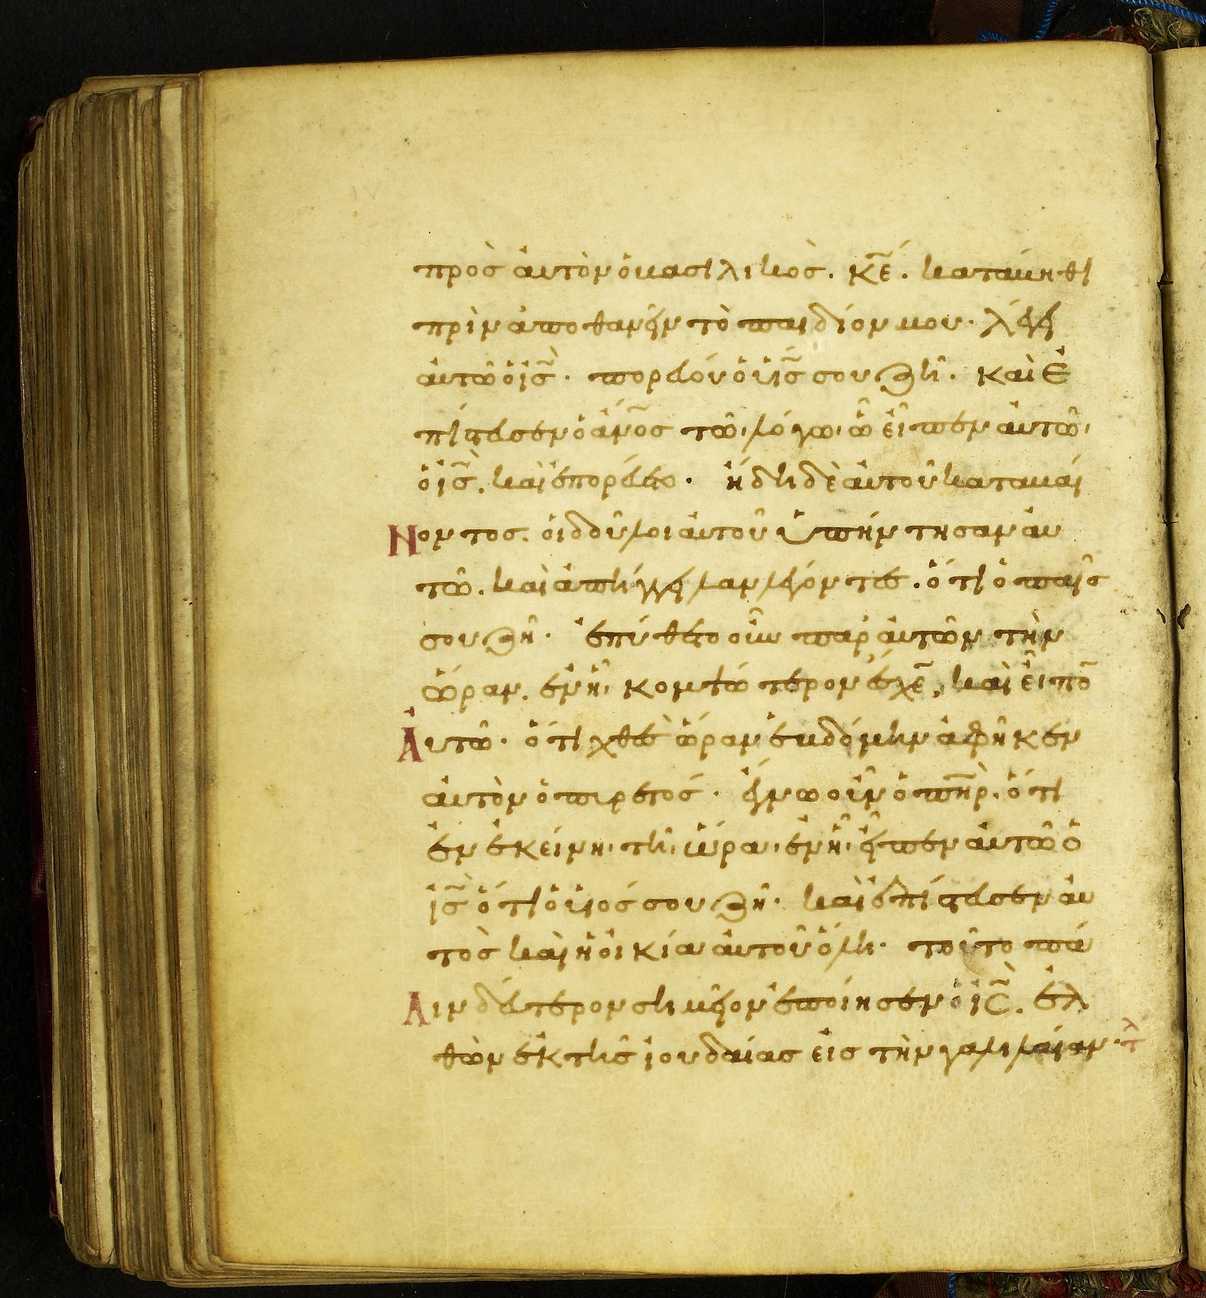 πρὸς ἀυτὸν ὁ βασιλικὸς. κ̅ε̅. κατάβηθι
πρὶν ἀποθανεῖν τὸ παιδίον μου. λέγει
ἀυτῶ ὁ ἰ̅ς̅. πορεύου ὁ ὑι̅ς̅ σου ζῆ. καὶ ἐ
πίστευσεν ὁ ἀ̅ν̅ο̅ς̅ τῶ λόγω ὧ εἶπεν ἀυτῶ
ὁ ἰ̅ς̅. καὶ ἐπορεύετο. ἤδη δὲ ἀυτοῦ καταβαί
νοντος. ὁι δοῦλοι ἀυτοῦ ὑπήντησαν ἀυ
τῶ. καὶ ἀπήγγειλαν λέγοντες. ὅτι ὁ παῖς
σου ζῆ. ἐπύθετο οὖν παρ' ἀυτῶν τὴν
ὥραν. ἐν ἧ κομψότερον ἔσχε̅, καὶ εἶπο̅
Ἀυτῶ. ὅτι χθὲς ὥραν ἑβδόμην ἀφῆκεν
ἀυτὸν ὁ πυρετός. ἔγνω οὖν ὁ π̅η̅ρ̅. ὅτι
ἐν ἐκείνη τῆ ὥρα. ἐν ἧ εἶπεν ἀυτῶ ὁ
ἰ̅ς̅ ὅτι ὁ ὑιός σου ζῆ. καὶ ἐπίστευσεν ἀυ
τὸς καὶ ἡ ὀικία ἀυτοῦ ὅλη. τοῦτο πά
λιν δεύτερον σημεῖον ἐποίησεν ὁ ἰ̅ς̅. ἐλ
θὼν ἐκ τῆς ἰουδαίας εἰς τὴν γαλιλαίαν. τλ